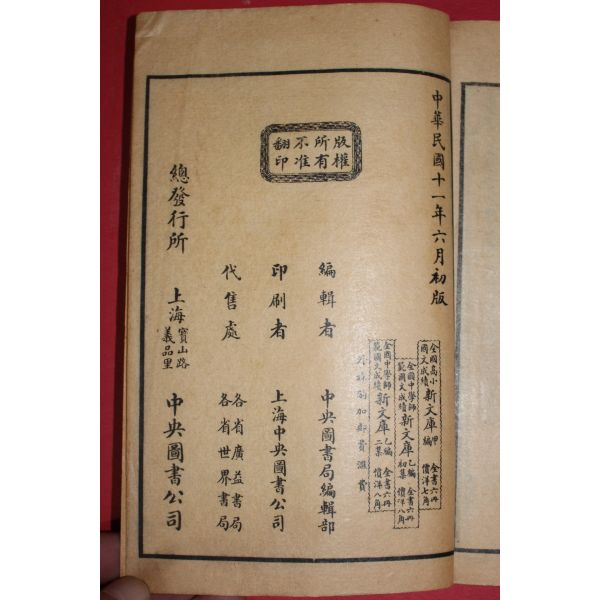 中華民國十一年六月初版
全國高小國文成績新文庫甲編 全書六冊 價洋七角
全國中學師範國文成績新文庫乙編初集 全書六冊 價洋八角
全國中學師範國文成績新文庫乙編二集 全書六冊 價洋八角
外埠酌加郵費滙費
版權所有
不准翻印
編輯者 中央圖書局編輯部
印刷者 上海中央圖書公司
代售處 各省廣益書局
各省世界書局
總發行所 上海寶山路義品里 中央圖書公司